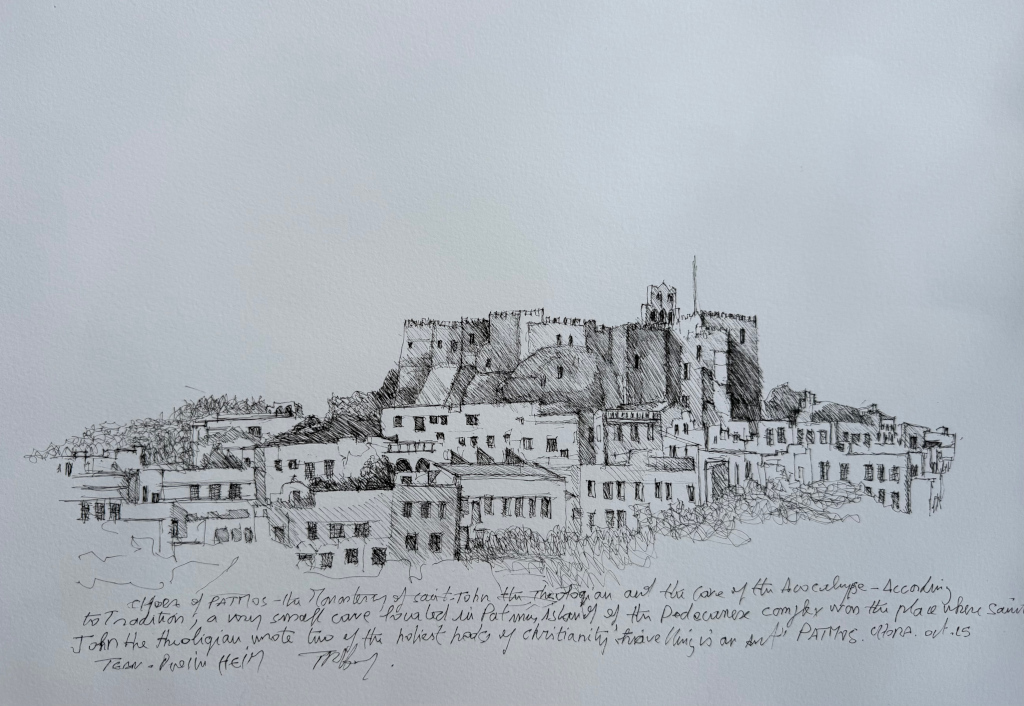 of PATMOS - the Monastery of saint-John the Theologian and the cave of the Apocalypse - According
to Tradition, a very small cave located in Patmos, Island of the Dodecanese complex was the place where Saint
John the theoligian wrote two of the holiest books of christianity, travelling is an PATMOS. oct. 15
HEIM